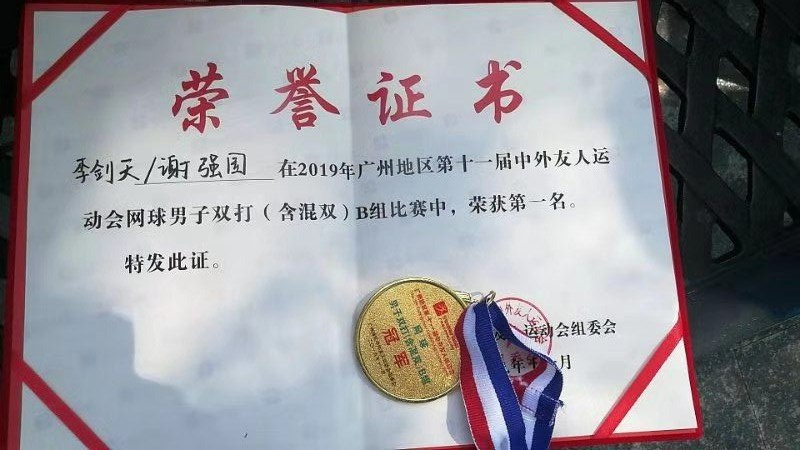 荣誉证书
李剑天/谢强国 在2019年广州地区第十一届中外友人运
动会网球男子双打（含混双）B组比赛中，荣获第一名。
特发此证。
运动会组委会
月
网球
男子双打(含混双)B组
冠军